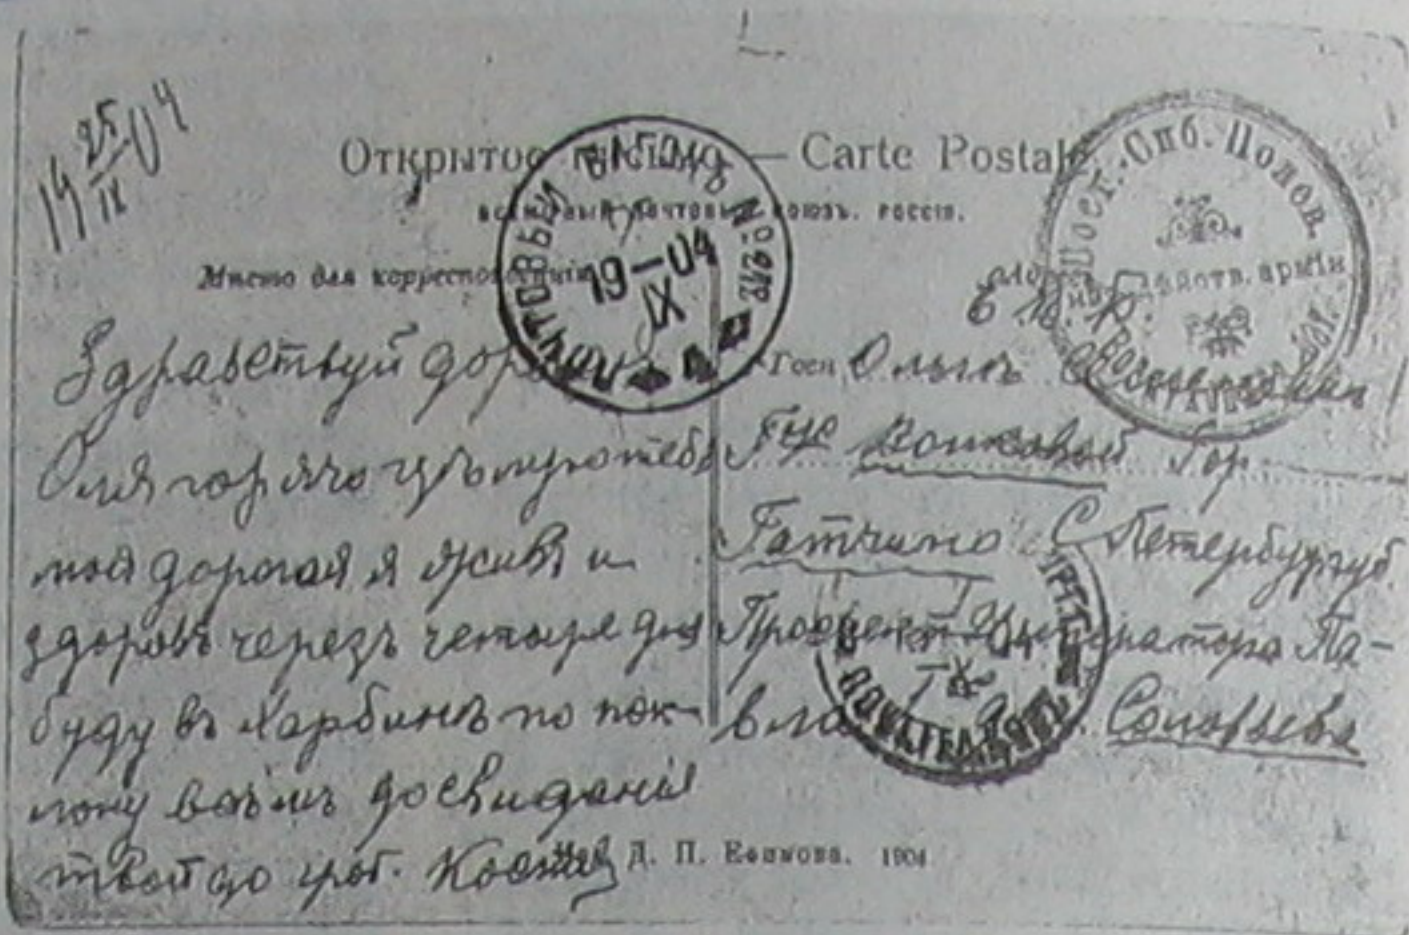 19 25/IX 04
Открытое письмо — Carte Postale
всемірный почтовый союзъ. россія.
Мѣсто для корреспонденціи
ПОЧТОВЫЙ ВАГОНЪ №
19—04
IX
Спб. Полов.
арміи
Здравствуй
Оля горячо цѣлую тебя
моя дорогая я живъ и
здоровъ черезъ четыре дня
буду въ Харбинѣ по пок-
лону всѣмъ досвиданія
твой до гроб.
Ольгѣ
Гже Волковой Гор
Гатчино С Петербург губ.
Проспект Императора Па-
вла Соловьева
Д. П. Ефимова. 1904